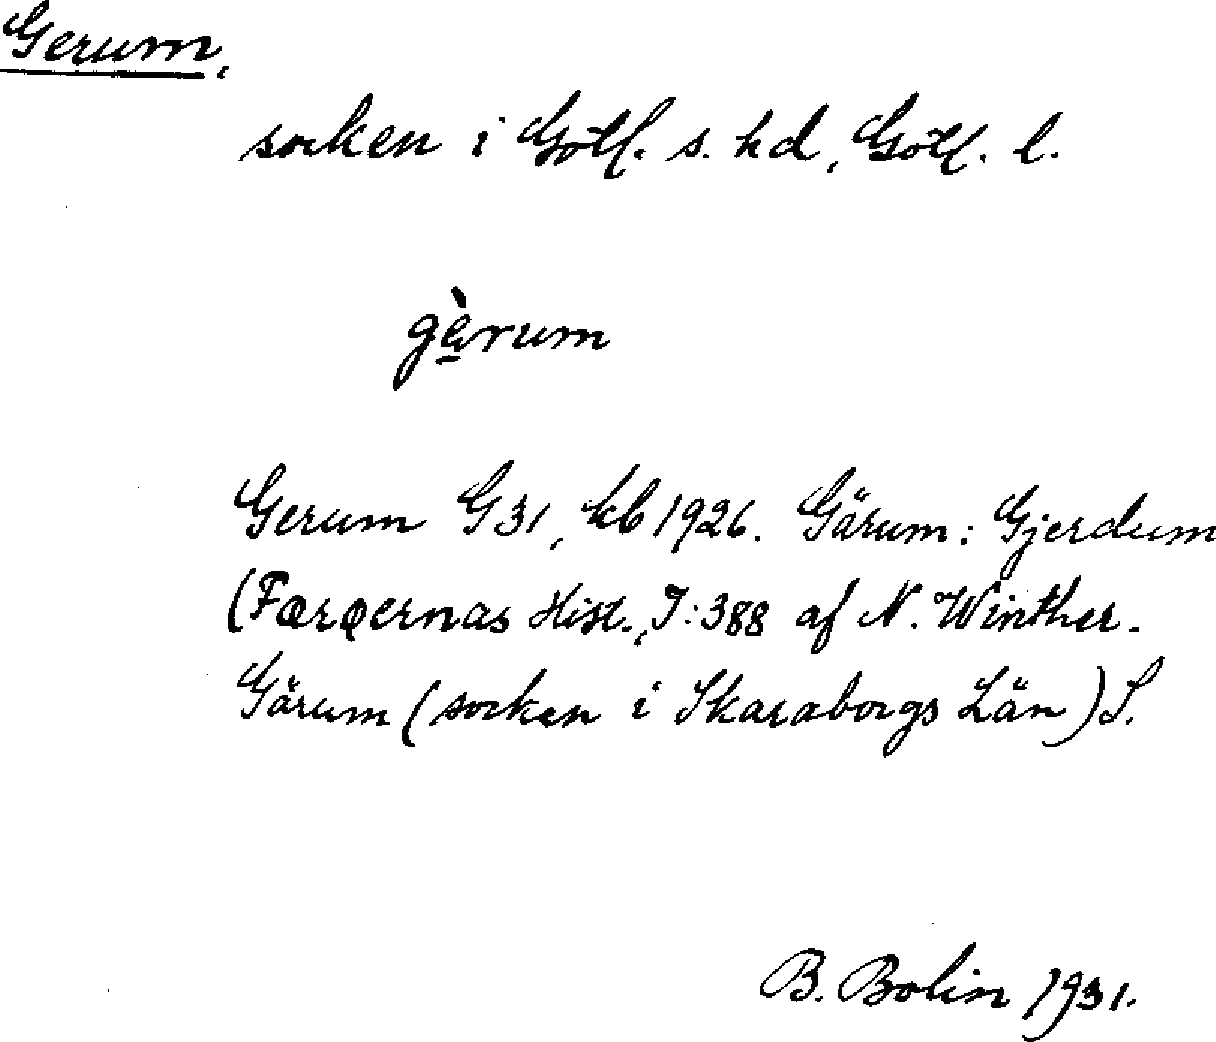 Gerum,
socken i Gotl. s. hd, Gotl. l.
gè̱rum
Gerum G31, kb 1926. Gärum: Gjerdum
(Færøernas Hist., I:388 af N. Winther.
Gärum (socken i Skaraborgs Län) S.
B. Bolin 1931.